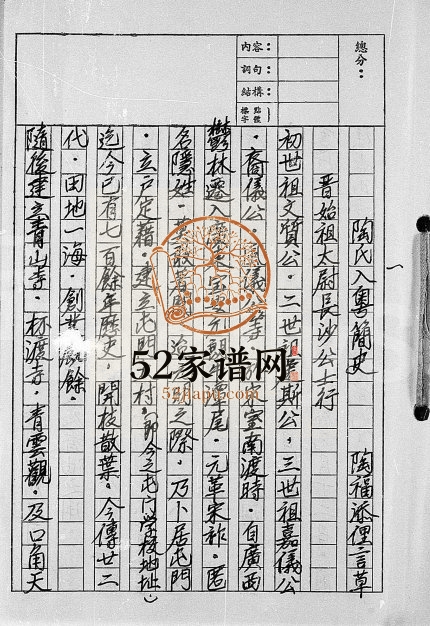 總分：
內容：
詞句：
結構：
標點
字體
陶氏入粵簡史　陶福添俚言草
晋始祖太尉長沙公士行
初世祖文質公．二世祖　斯公．三世祖嘉儀公
．裔儀公．　　　　　室南渡時．自廣西
鬱林遷入　　　　　　　潭尾．元革宋祚．匿
名隱姓．　　　　　　之際．乃卜居屯門
．立戶定籍．建立屯門　村。（即今之屯门学校地址）
迄今已有七百餘年歷史．開枝散葉。今傳廿二
代．田地一海．創業　餘．
隨後建立青山寺．杯渡寺．青雲觀．及口角天
52家谱网
52jiapu.com